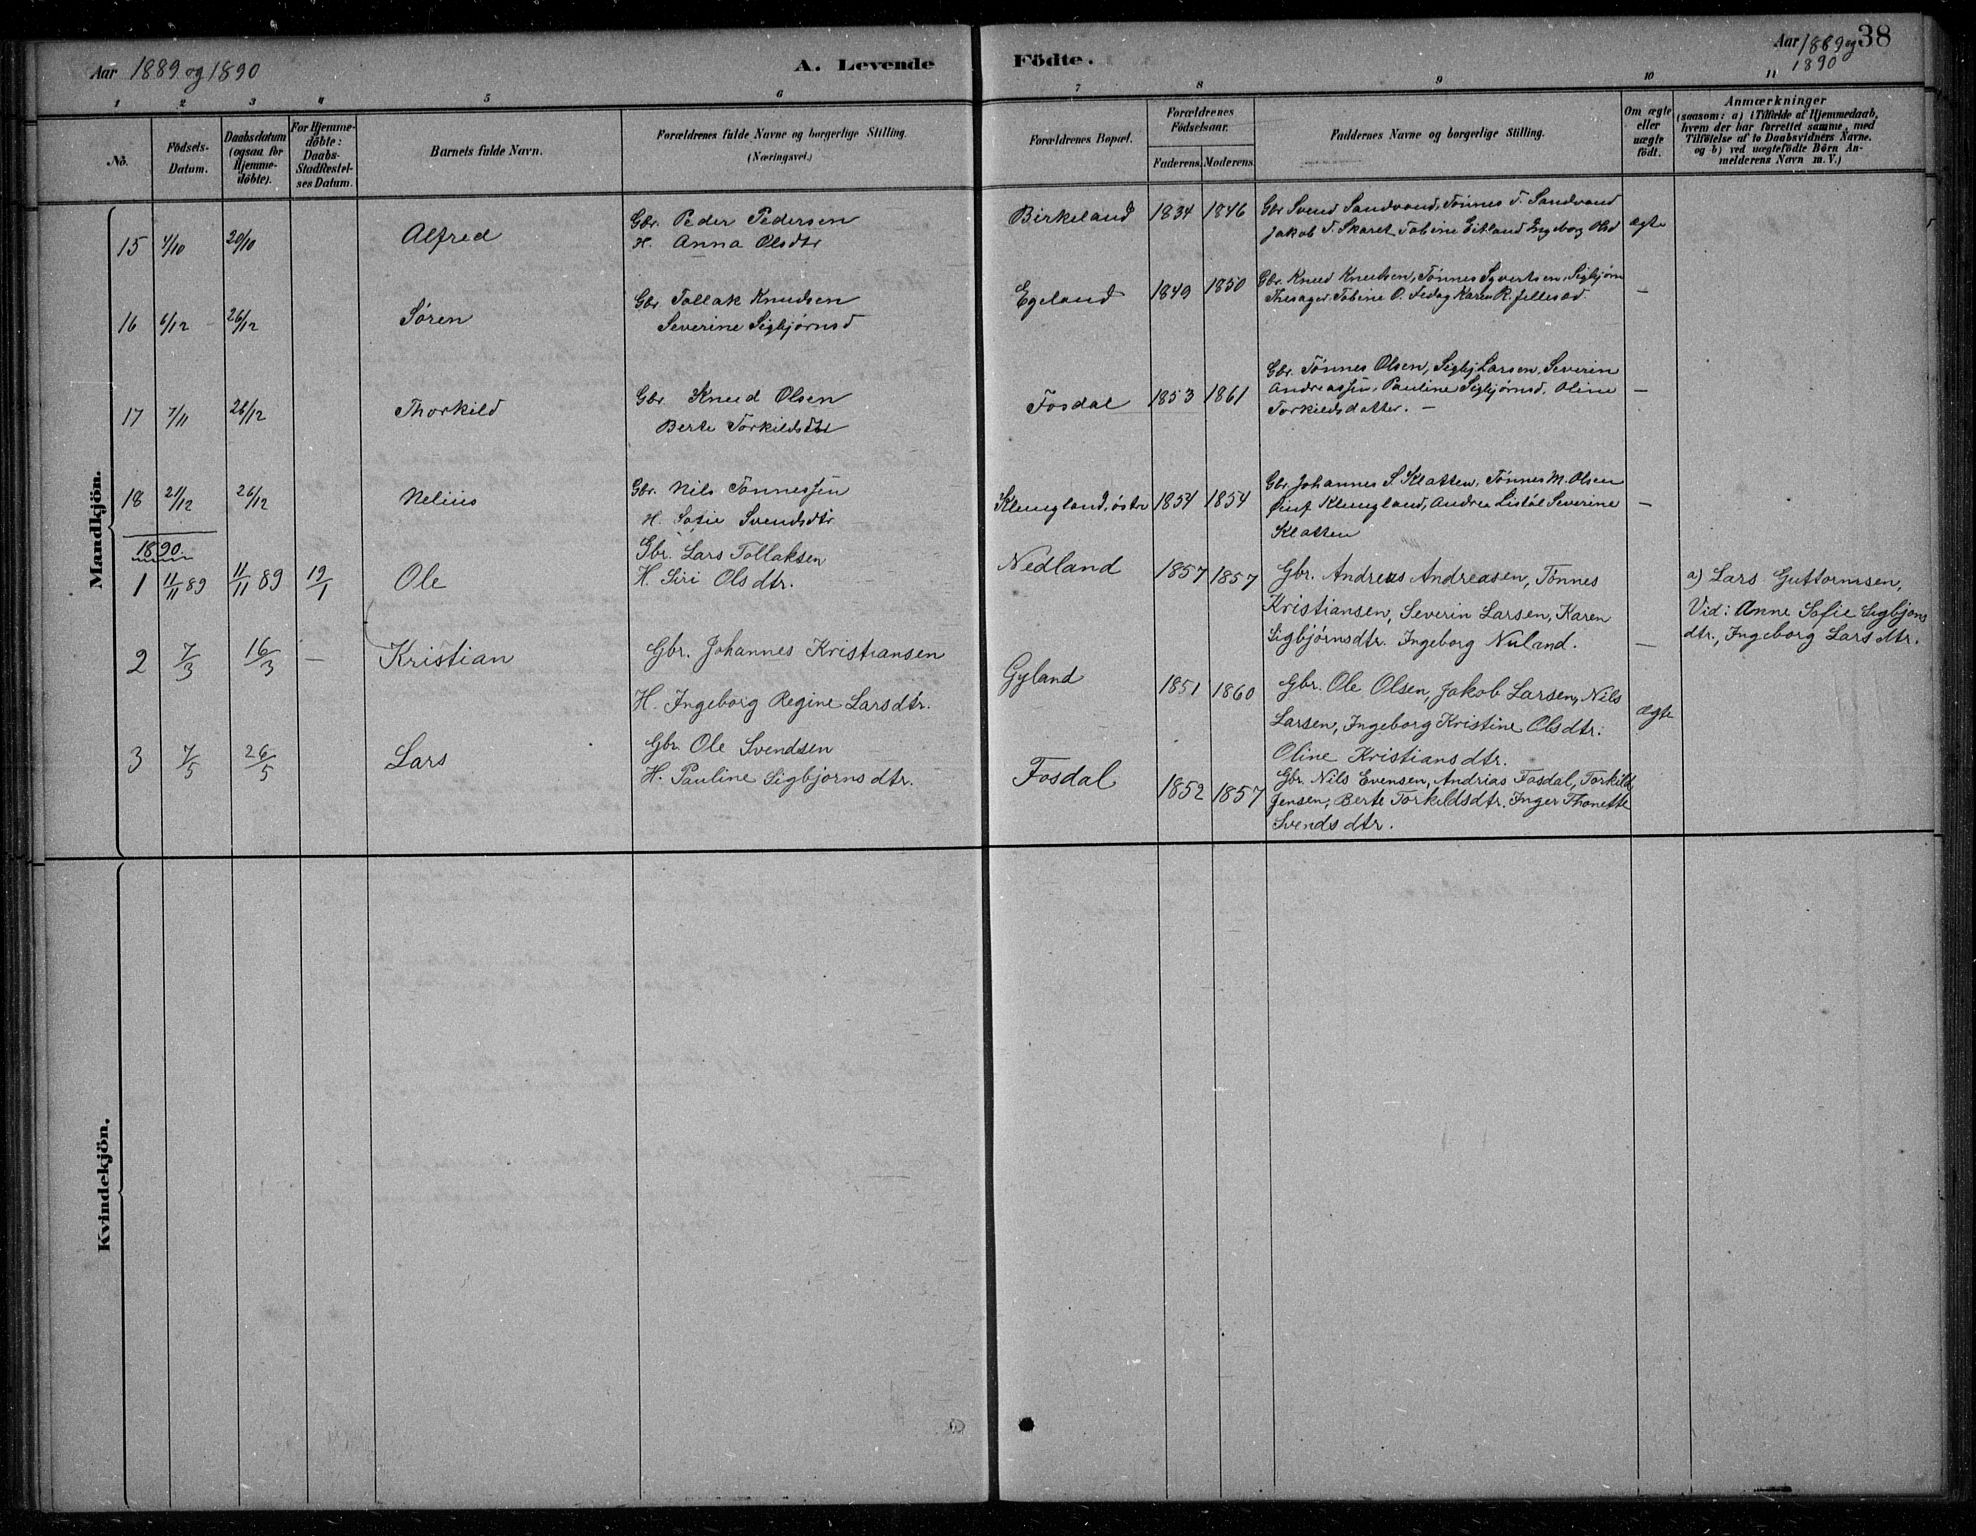 Aar 1889 og 1890
A. Levende Födte.
Aar 1889 og 1890
38
1 2 3 4 5 6 7 8 9 10 11
No.
Födsels-Datum.
Daabsdatum (ogsaa for Hjemmedöbte).
For Hjemmedöbte: Daabs-Stadfæstelses Datum.
Barnets fulde Navn.
Forældrenes fulde Navne og borgerlige Stilling. (Næringsvei.)
Forældrenes Bopæl.
Forældrenes Födselsaar.
Faderens. Moderens.
Faddernes Navne og borgerlige Stilling.
Om ægte eller uægte födt.
Anmærkninger
(saasom: a) i Tilfælde af Hjemmedaab, hvem der har forrettet samme, med Tilföielse af to Daabsvidners Navne. og b) ved uægtefödte Börn Anmelderens Navn m. V.)
Mandkjön.
15 4/10 20/10 Alfred
Gbr. Peder Pedersen
H. Anna Olsdtr
Birkeland 1834 1846
Gbr Svend Sandvand, Tönnes T. Sandvand
Jakob T. Skaret Tobine Eitland Ingeborg Olsd
ægte
16 6/12 26/12 Sören
Gbr Tollak Knudsen
Severine Sigbjörnsd
Egeland 1849 1850
Gbr. Knud Knudsen, Tönnes Syvertsen, Sigbjörn
Tobine O. Karen R.
—
17 7/11 26/12 Thorkild
Gbr. Knud Olsen
Berte Torkildsdtr
Fosdal 1853 1861
Gbr. Tönnes Olsen, Sigbj Larsen, Severin
Andreassen, Pauline Sigbjörnsd. Oline
Torkildsdatter. —
—
18 21/12 26/12 Nelius
Gbr. Nils Tönnessen
H. Sofie Svendsdtr
Klungland, östr 1854 1854
Gbr Johannes S. Klatten, Tönnes M. Olsen
Klungland, Andrea Listöl Severine
Klatten
—
1890.
1 11/11 89 11/11 89 19/1 Ole
Gbr. Lars Tollaksen
H. Siri Olsdtr.
Nedland 1857 1857
Gbr. Andreas Andreasen, Tönnes
Kristiansen, Severin Larsen, Karen
Sigbjörnsdtr. Ingeborg Nuland.
—
a) Lars Guttormsen,
Vid: Anne Sofie Sigbjöns
dtr., Ingeborg Larsdtr.
2 7/3 16/3 — Kristian
Gbr. Johannes Kristiansen
H. Ingeborg Regine Larsdtr.
Gyland 1851 1860
Gbr. Ole Olsen, Jakob Larsen, Nils
Larsen, Ingeborg Kristine Olsdtr.
Oline Kristiansdtr.
ægte
3 7/5 26/5 Lars
Gbr. Ole Svendsen
H. Pauline Sigbjörnsdtr.
Fosdal 1852 1857
Gbr. Nils Evensen, Andrias Fosdal, Torkild
Jensen, Berte Torkildsdtr. Inger Thonette
Svendsdtr.
Kvindekjön.